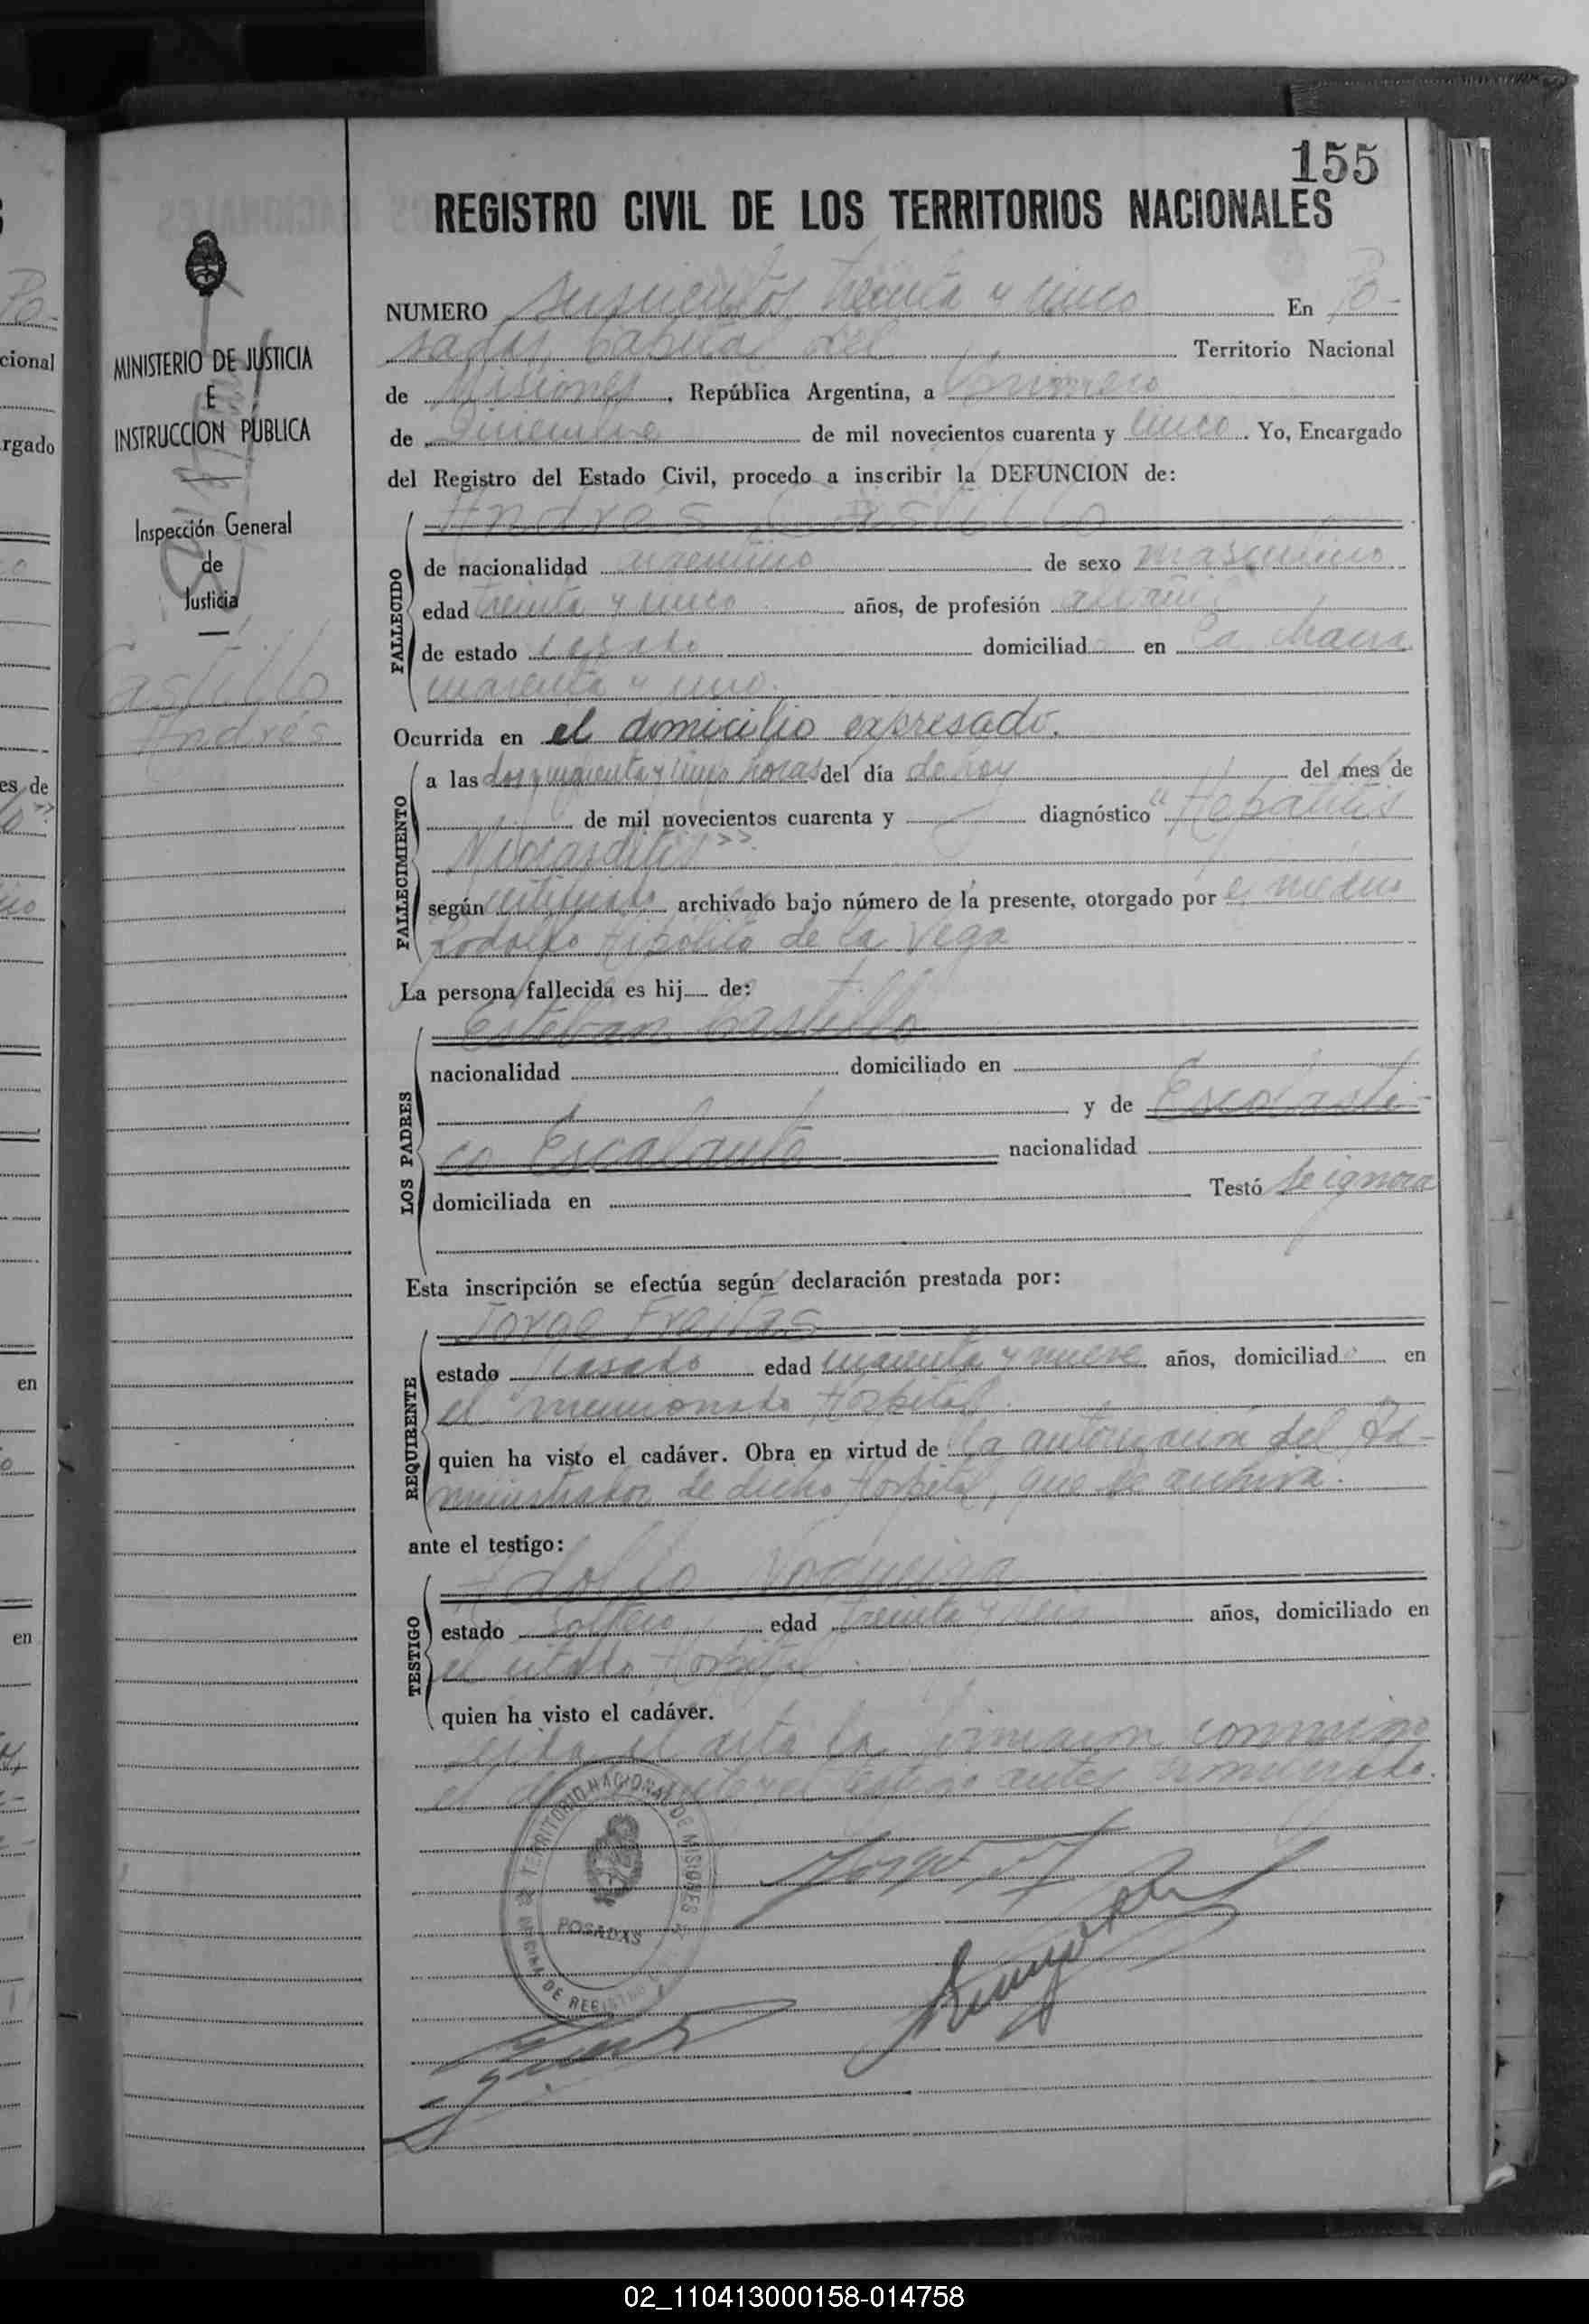 155
REGISTRO CIVIL DE LOS TERRITORIOS NACIONALES
MINISTERIO DE JUSTICIA
E
INSTRUCCION PÚBLICA
Inspección General
de
Justicia
Castillo
Andrés
NUMERO seiscientos treinta y cinco En Po-
sadas Capital del Territorio Nacional
de Misiones, República Argentina, a primero
de Diciembre de mil novecientos cuarenta y cinco. Yo, Encargado
del Registro del Estado Civil, procedo a inscribir la DEFUNCION de:
Andrés Castillo
FALLECIDO
de nacionalidad argentino de sexo masculino
edad treinta y cinco años, de profesión
de estado casado domiciliado en la chacra
Ocurrida en el domicilio expresado.
FALLECIMIENTO
a las horas del día de hoy del mes de
de mil novecientos cuarenta y diagnóstico "Hepatitis
Miocarditis".
según certificado archivado bajo número de la presente, otorgado por el médico
Rodolfo Hipólito de la Vega
La persona fallecida es hij de:
LOS PADRES
Esteban Castillo
nacionalidad domiciliado en
y de Escolásti-
ca Escalante nacionalidad
domiciliada en Testó se ignora
Esta inscripción se efectúa según declaración prestada por:
REQUIRENTE
Jorge Freitas
estado casado edad cuarenta y nueve años, domiciliado en
el mencionado Hospital.
quien ha visto el cadáver. Obra en virtud de la autorización del Ad-
ministrador de dicho Hospital, que se archiva.
ante el testigo:
TESTIGO
Adolfo Nogueira
estado soltero edad treinta y años, domiciliado en
el citado Hospital.
quien ha visto el cadáver.
Leída el acta la firmaron conmigo
el y el testigo antes
TERRITORIO NACIONAL DE MISIONES
POSADAS
OFICINA DE REGISTRO
02_110413000158-014758